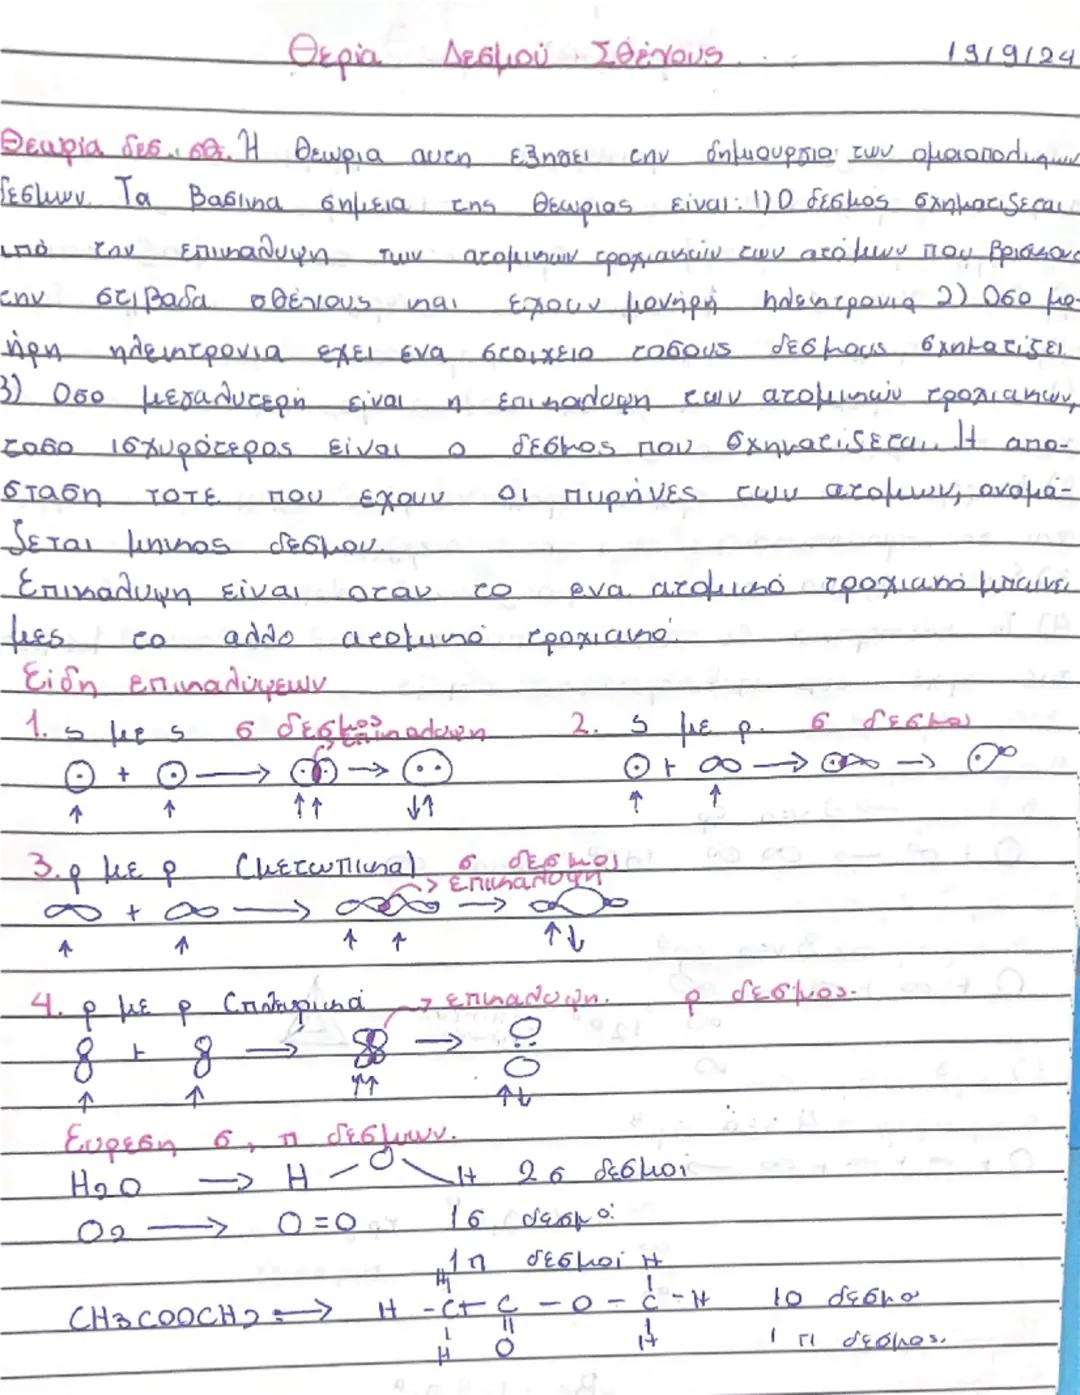 Θερία Δεσμού Σθένους 19/9/24
Θεωρία δεσ. σθ. Η θεωρια αυτη εξηγει την δημιουργια των ομοιοπολικων
δεσμων. Τα βασικα σημεια της θεωριας είναι: 1) Ο δεσμος σχηματιζεται
από την επικαλυψη των ατομικων τροχιακών των ατόμων που βρισκονται
την στιβαδα σθένους και εχουν μονήρη ηλεκτρονια 2) Οσο μο-
νήρη ηλεκτρονια εχει ενα στοιχειο τοσους δεσμους σχηματίζει
3) Οσο μεγαλυτερη είναι η επικαλυψη των ατομικών τροχιακων,
τοσο ισχυρότερος είναι ο δεσμος που σχηματιζεται. Η απο-
σταση τοτε που εχουν οι πυρήνες των ατομων, ονομά-
ζεται μηκος δεσμου.
Επικαλυψη είναι οταν το ενα ατομικό τροχιακό μπαινει
μες το αλλο ατομικό τροχιακό.
Είδη επικαλύψεων
1. s με s σ δεσμος 2. s με p. σ δεσμοι
επικαλυψη
3. p με p (μετωπικα) σ δεσμος
επικαλυψη
4. p με p (πλευρικά επικαλυψη. p δεσμος.
Ευρεση σ, π δεσμων.
H2O → H – O \ H 2 σ δεσμοι
O2 → O = O 1 σ δεσμοι
1 π δεσμοί
H H
CH3COOCH3 → H - C - C - O - C - H 10 δεσμο
H O H 1 π δεσμος.